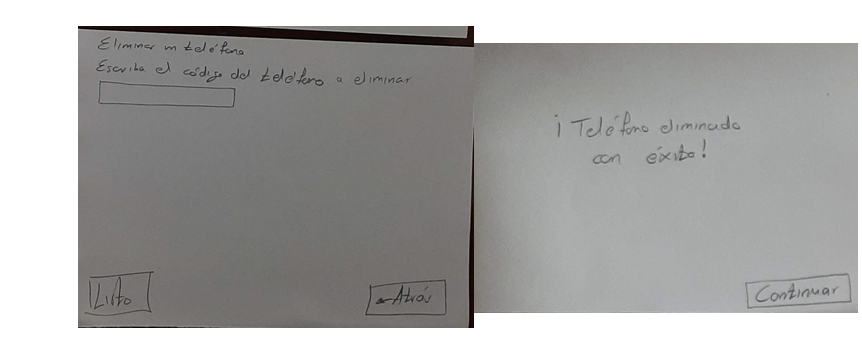 Eliminar un teléfono
Escriba el código del teléfono a eliminar
Listo
←Atrás
¡Teléfono eliminado
con éxito!
Continuar